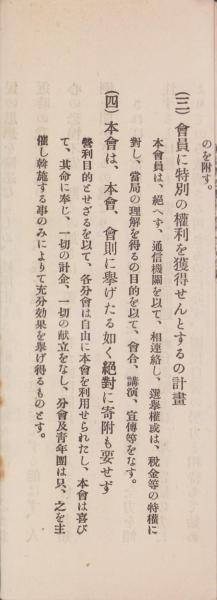 のを附す。
(三) 會員に特別の權利を獲得せんとするの計畫
本會員は、絕へず、通信機關を以て、相連絡し、選擧權或は、稅金等の特權に
對し、當局の理解を得るの目的を以て、會合、講演、宣傳等をなす。
(四) 本會は、本會、會則に擧げたる如く絕對に寄附も要せず
營利目的とせざるを以て、各分會は自由に本會を利用せられたし、本會は喜び
て、其命に奉じ、一切の計金、一切の献立をなし、分會及靑年團は只、之を主
催し斡施する事のみによりて充分效果を擧げ得るものとす。